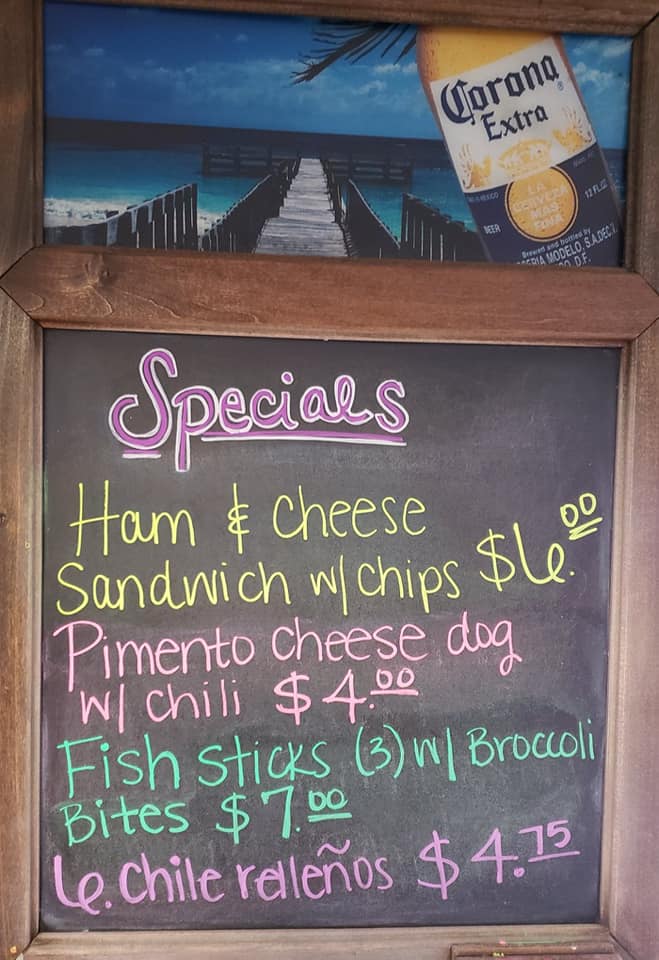 Corona
Extra
LA
CERVEZA
MAS
FINA
BEER
12 FL.OZ
Brewed and bottled by
MODELO, S.A.DEC.V.
D.F.
Specials
Ham & Cheese
Sandwich w/ chips $6.00
Pimento cheese dog
w/ chili $4.00
Fish sticks (3) w/ Broccoli
Bites $7.00
6. Chile relleños $4.75